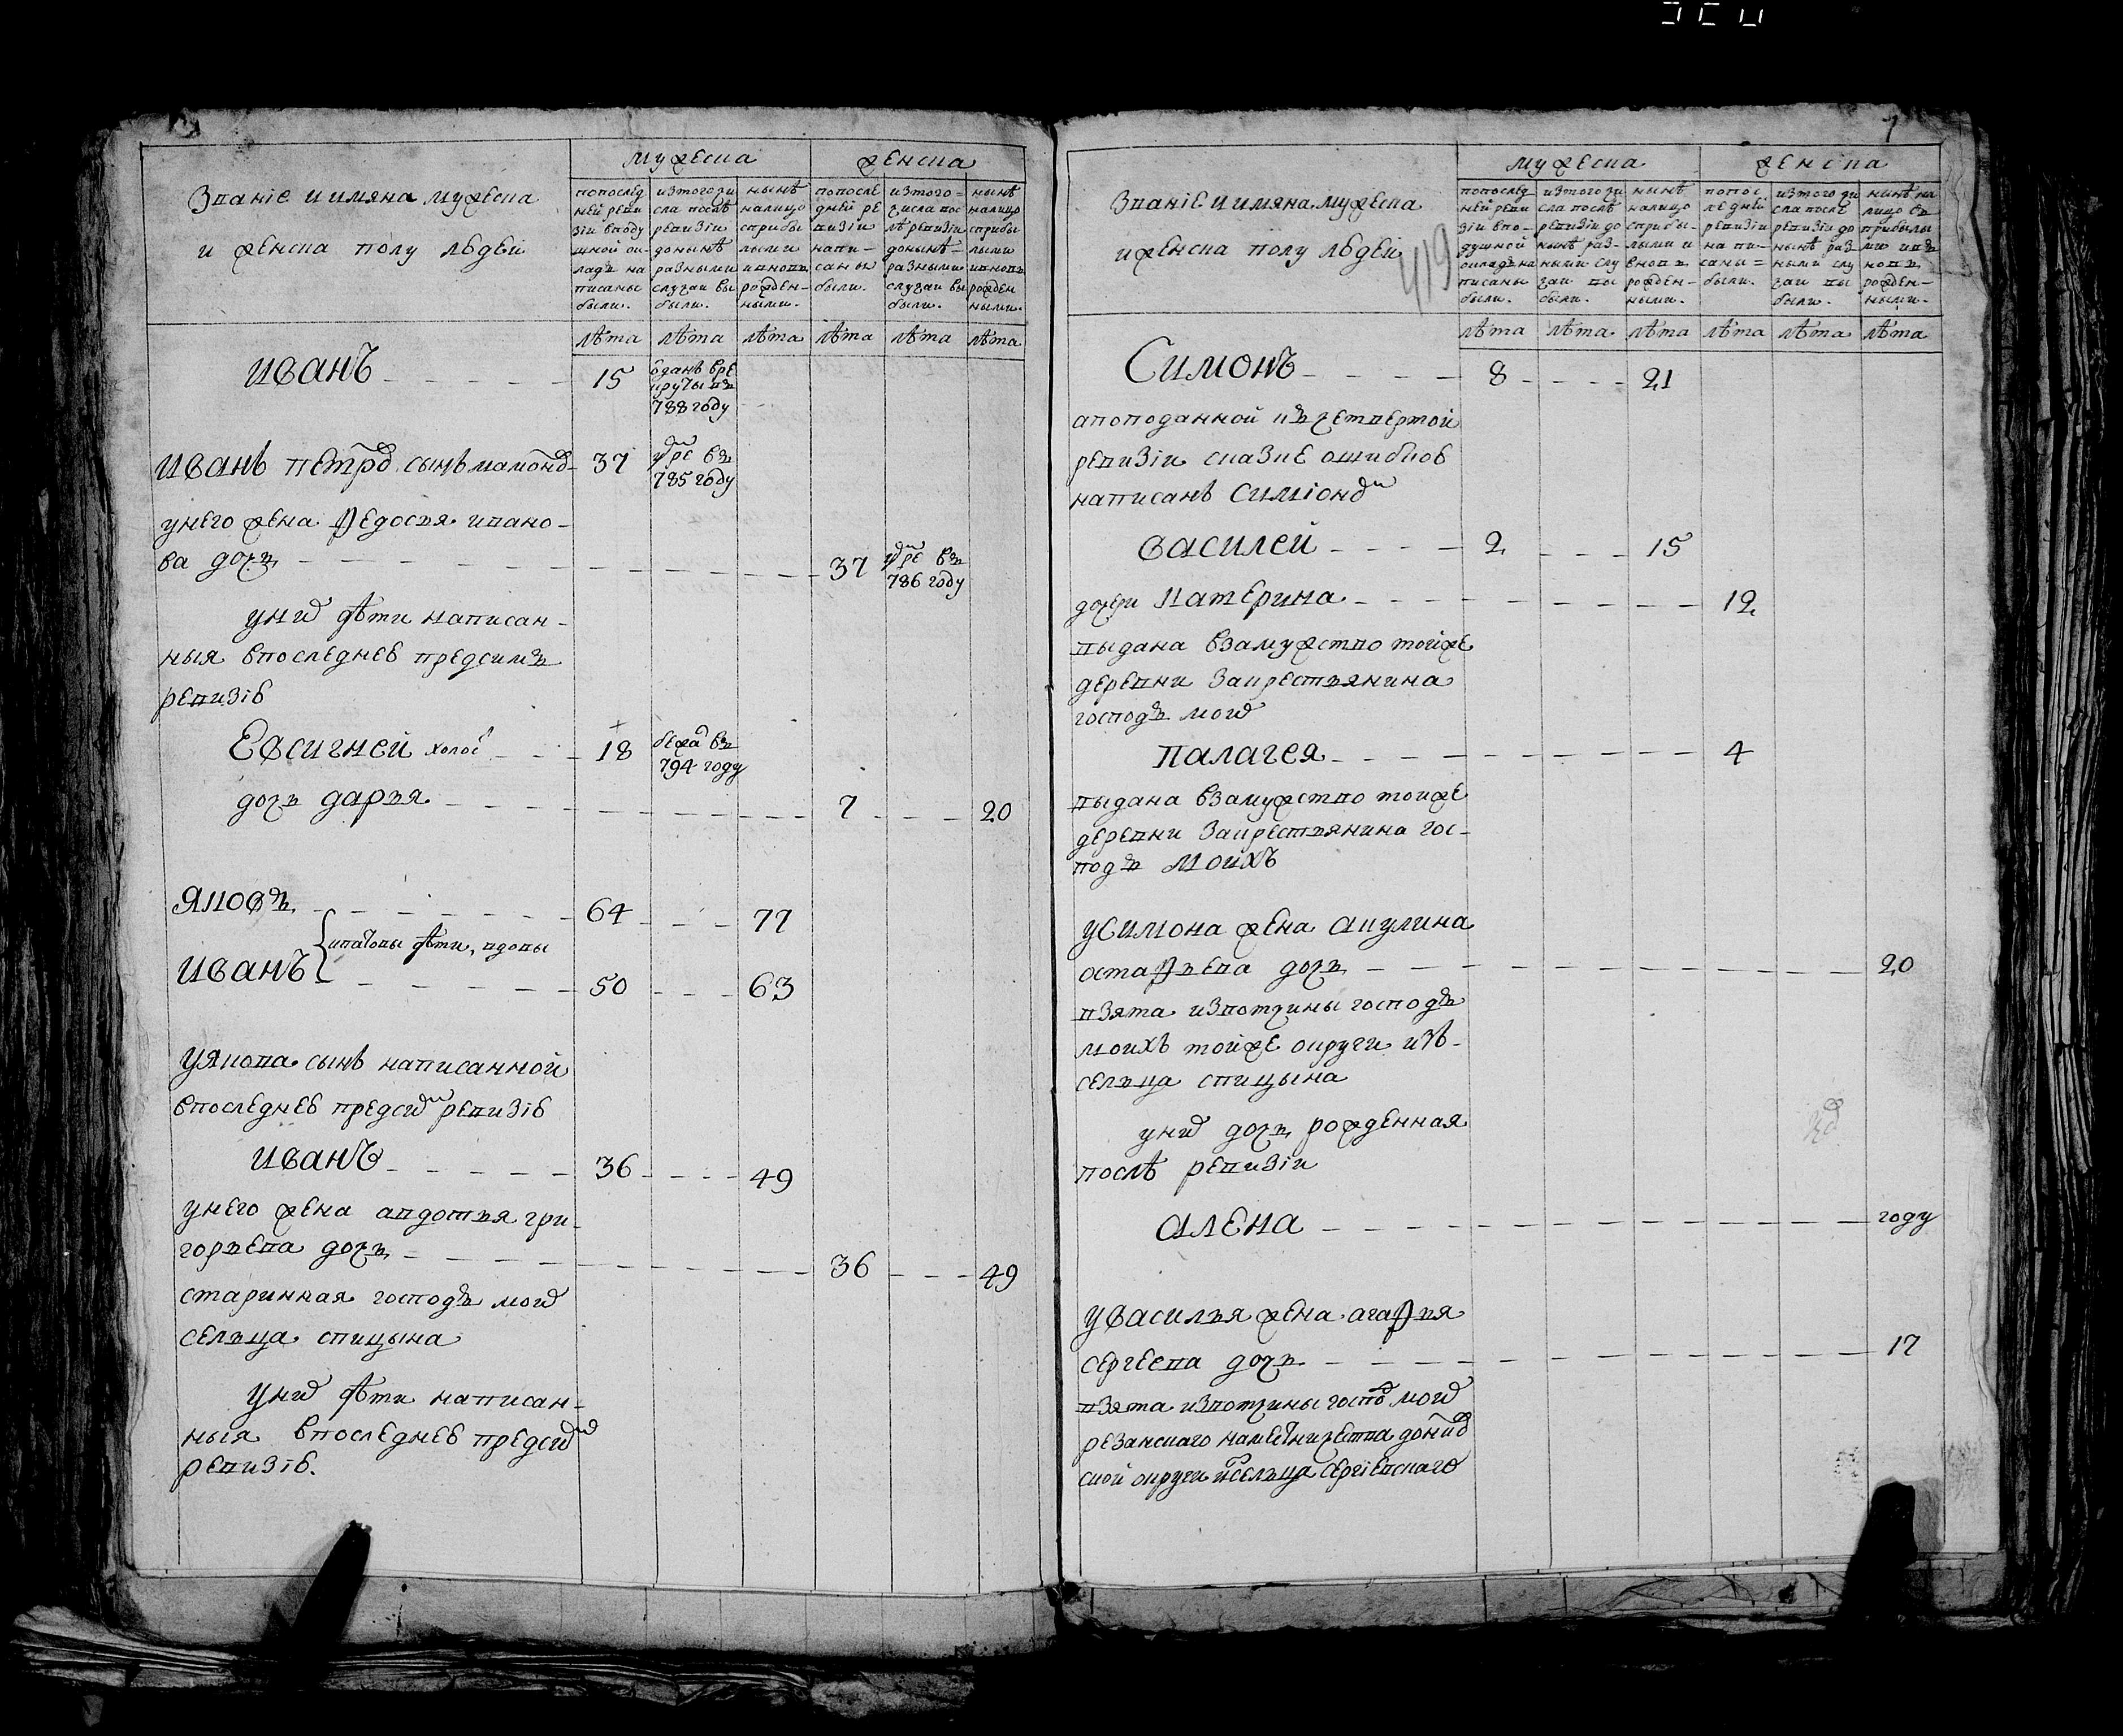 Званіе и имяна мужеска
и женска полу людей
мужеска
женска
попослед
ней реви
зіи вподу
шной ок
ладъ на
писаны
были.
изтогочи
сла послѣ
ревизіи
донынѣ
разными
случаи вы
были.
нынѣ
налицо
сприбы
лыми
ивновь
рожден-
ными.
попосле
дней ре
визіи
напи-
саны
были.
изтого-
числа пос
лѣ ревизіи
донынѣ-
разными
случаи вы
были.
нынѣ
налицо
сприбы
лыми
ивновь
рожден
ными.
лѣта лѣта лѣта лѣта лѣта лѣта
Иванъ 15 отданъ вре
круты въ
788 году
Иванъ Петров сынъ мамонов 37 умре въ
785 году
унего жена Федосья ивано-
ва дочь 37 умре въ
786 году
уних дѣти написан-
ныя впоследнею предсимъ
ревизію
Евсигней холос 18 бежал въ
794 году
дочь дарья 7 20
Яковъ 64 77
ипатовы дѣти, вдовы
Иванъ 50 63
уякова сынъ написанной
впоследнею предсим ревизію
Иванъ 36 49
унего жена авдотья гри-
горьева дочь 36 49
старинная господъ моих
сельца спицына
уних дѣти написан-
ныя впоследнею предсим
ревизію.
7
419
Званіе и имяна мужеска
и женска полу людей
мужеска
женска
попослед
ней реви
зіи впо-
душной
окладъ на
писаны
были.
изтого чи
сла послѣ
ревизіи до
нынѣ раз-
ными слу
чаи вы
были.
нынѣ
налицо
сприбы-
лыми и
вновь
рожден-
ными.
попос
ледней
ревизіи
на пи-
саны=
были.
изтого чи
сла послѣ
ревизіи до
нынѣ раз
ными слу
чаи вы
были.
нынѣ на
лицо съ
прибылы
ми ивъ
новь
рожден-
ными.
лѣта лѣта лѣта лѣта лѣта лѣта
Симонъ 8 21
апоподанной въ четвертой
ревизіи сказке ошибкою
написанъ Симіоном
Василей 2 15
дочери Катерина 12
выдана взамужство тойже
деревни закрестьянина
господъ моих
Палагея 4
выдана взамужство тойже
деревни закрестьянина гос-
подъ моихъ
уСимона жена Акулина
остафьева дочь 20
взята извотчины господъ
моихъ тойже округи изъ-
сельца спицына
уних дочь рожденная
послѣ ревизіи
Алена году
уВасилья жена агафья
сергеева дочь 17
взята извотчины господ моих
резанскаго наместничества донков
ской округи изсельца Сергіевскаго